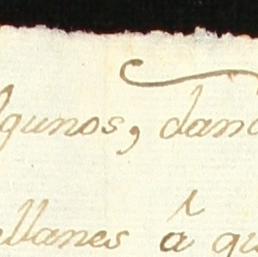 lgunos, dand
ellanes â qu